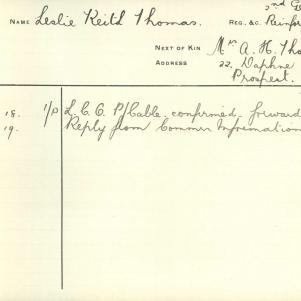 2nd G
NAME Leslie Keith Thomas. REG. &C. Reinfor
NEXT OF KIN Mrs A. H. Tho
ADDRESS 22. Daphne
Prospect.
18. I/P L.C.C. Pf Cable. confirmed, forward
19. Reply from Commr Information